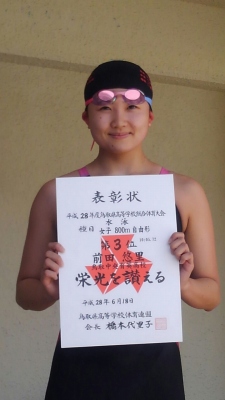 表彰状
平成28年度鳥取県高等学校総合体育大会
水泳
種目 女子 800m自由形
第3位
前田 悠里
栄光を讃える
平成28年6月18日
鳥取県高等学校体育連盟
会長 橋本代里子